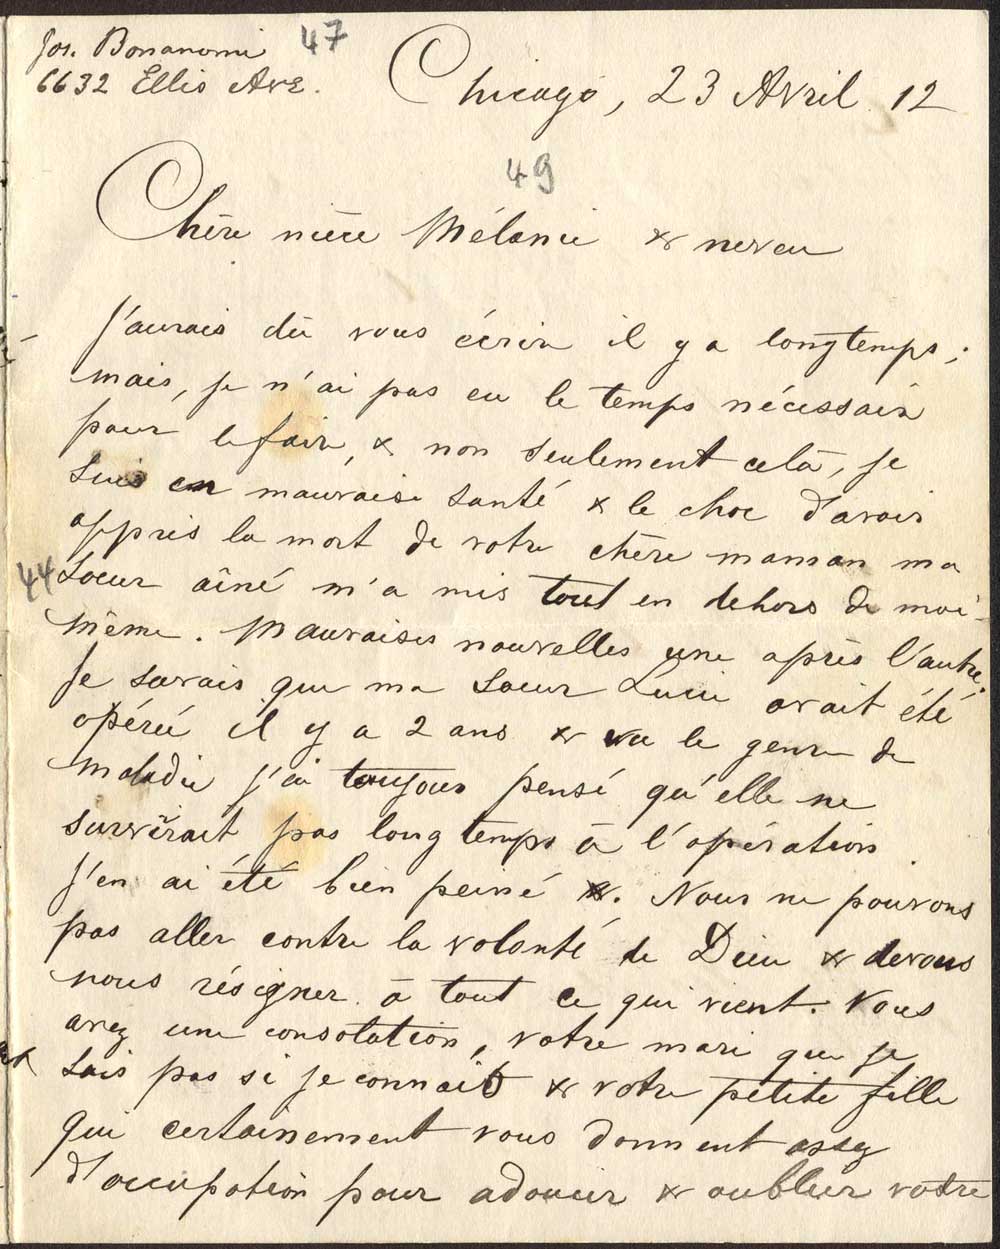 Jos. Bonanomi 47
6632 Ellis Ave.
Chicago, 23 Avril 12
49
Chère nièce Mélanie & neveu
J'aurais dû vous écrire il y a longtemps;
mais, je n'ai pas eu le temps nécessaire
pour le faire, & non seulement celà, je
suis en mauvaise santé & le choc d'avoir
appris la mort de votre chère maman ma
44 soeur aîné m'a mis tout en dehors de moi-
même. Mauvaises nouvelles une après l'autre;
Je savais que ma soeur Lucie avait été
opérée il y a 2 ans & vu le genre de
maladie j'ai toujours pensé qu'elle ne
survivrait pas longtemps à l'opération.
J'en ai été bien peiné &. Nous ne pouvons
pas aller contre la volonté de Dieu & devons
nous résigner à tout ce qui vient. Vous
avez une consolation, votre mari que je
sais pas si je connais & votre petite fille
qui certainement vous donnent assez
d'occupation pour adoucir & oublier votre